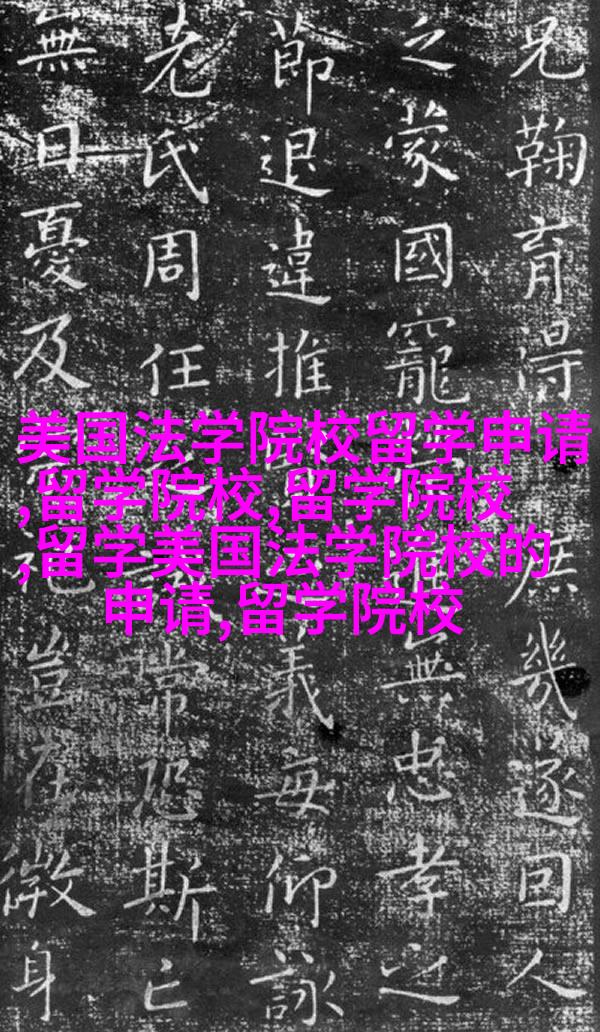 美国法学院校留学申请
,留学院校,留学院校
,留学美国法学院校的
申请,留学院校
兄鞠育得庶幾遂因人
乏蒙國寵無忠孝之
節退違推義每仰詠
老氏周任誡常恐斯亡
無日憂及祀豈在微身